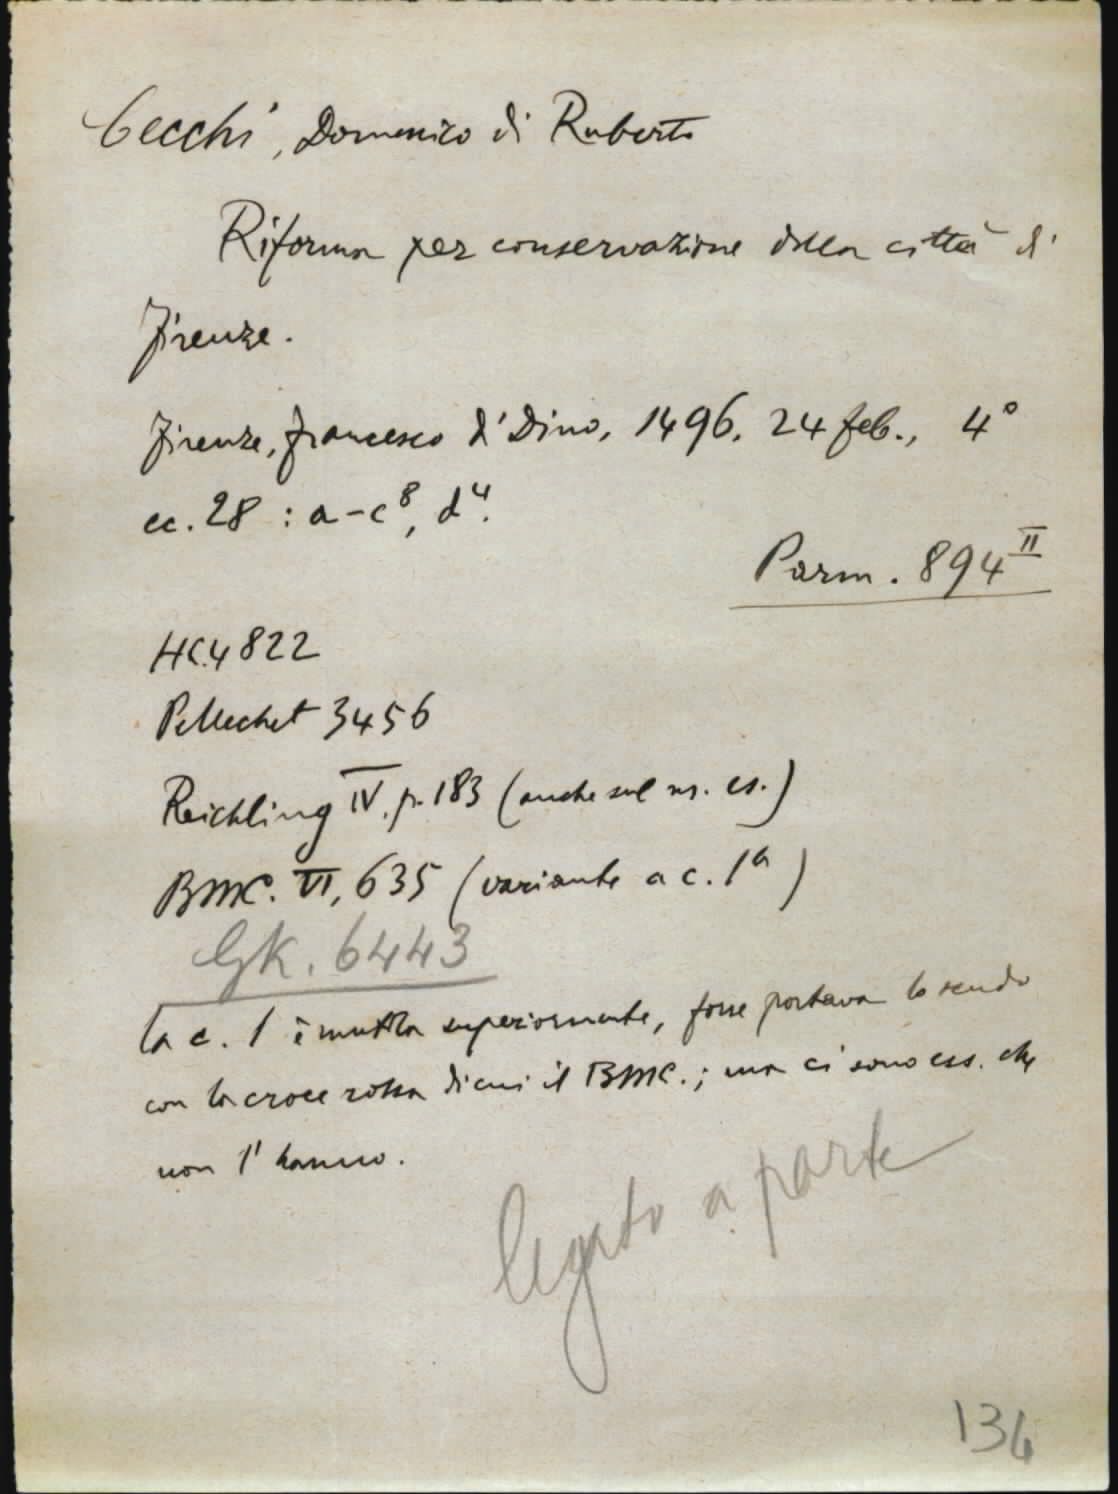 Cecchi, Domenico di Ruberto
Riforma per conservazione della città di
Firenze.
Firenze, Francesco di Dino, 1496. 24 feb., 4°
cc. 28 : a-c⁸, d⁴.
Parm. 894 II
HC. 4822
Pellechet 3456
Reichling IV. p. 183 (anche sul ns. es.)
BMC. VI, 635 (variante a c. 1ª)
GK. 6443
La c. 1 è mutila superiormente, forse portava lo scudo
con la croce rossa di cui il BMC.; ma ci sono ess. che
non l'hanno.
legato a parte
134